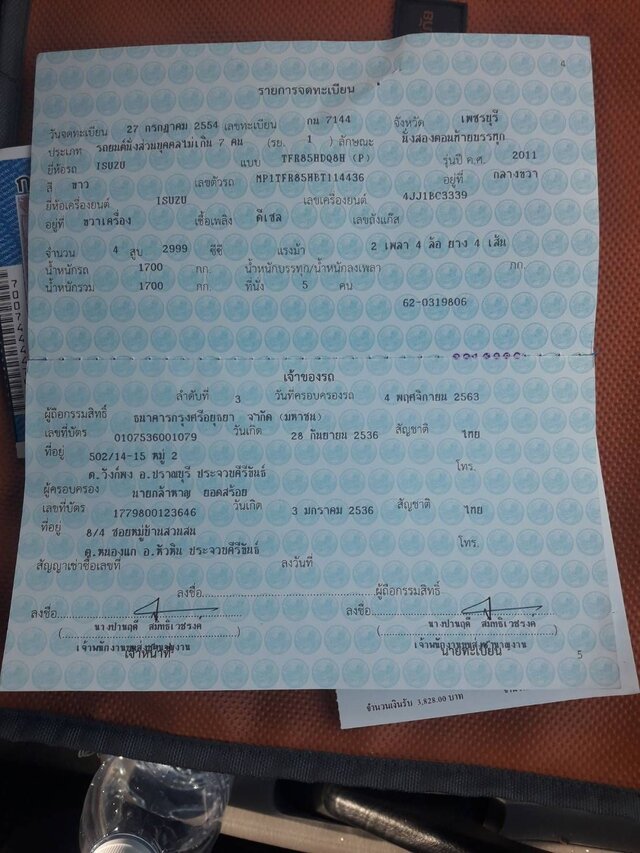 4
รายการจดทะเบียน
วันจดทะเบียน 27 กรกฎาคม 2554 เลขทะเบียน กน 7144 จังหวัด เพชรบุรี
ประเภท รถยนต์นั่งส่วนบุคคลไม่เกิน 7 คน (รย. 1 ) ลักษณะ นั่งสองตอนท้ายบรรทุก
ยี่ห้อรถ ISUZU แบบ TFR85HDQ8H (P) รุ่นปี ค.ศ. 2011
สี ขาว เลขตัวรถ MP1TFR85HBT114436 อยู่ที่ กลางขวา
ยี่ห้อเครื่องยนต์ ISUZU เลขเครื่องยนต์ 4JJ1BC3339
อยู่ที่ ขวาเครื่อง เชื้อเพลิง ดีเซล เลขถังแก๊ส
จำนวน 4 สูบ 2999 ซีซี แรงม้า 2 เพลา 4 ล้อ ยาง 4 เส้น
น้ำหนักรถ 1700 กก. น้ำหนักบรรทุก/น้ำหนักลงเพลา กก.
น้ำหนักรวม 1700 กก. ที่นั่ง 5 คน
62-0319806
เจ้าของรถ
ลำดับที่ 3 วันที่ครอบครองรถ 4 พฤศจิกายน 2563
ผู้ถือกรรมสิทธิ์ ธนาคารกรุงศรีอยุธยา จำกัด (มหาชน)
เลขที่บัตร 0107536001079 วันเกิด 28 กันยายน 2536 สัญชาติ ไทย
ที่อยู่ 502/14-15 หมู่ 2
ต.วังก์พง อ.ปราณบุรี ประจวบคีรีขันธ์ โทร.
ผู้ครอบครอง นายกล้าหาญ ยอดสร้อย
เลขที่บัตร 1779800123646 วันเกิด 3 มกราคม 2536 สัญชาติ ไทย
ที่อยู่ 8/4 ซอยหมู่บ้านสวนสน
ต.หนองแก อ.หัวหิน ประจวบคีรีขันธ์ โทร.
สัญญาเช่าซื้อเลขที่ ลงวันที่
ลงชื่อ ผู้ถือกรรมสิทธิ์
ลงชื่อ ลงชื่อ
เจ้าหน้าที่ นายทะเบียน
5
จำนวนเงินรับ 3,828.00 บาท